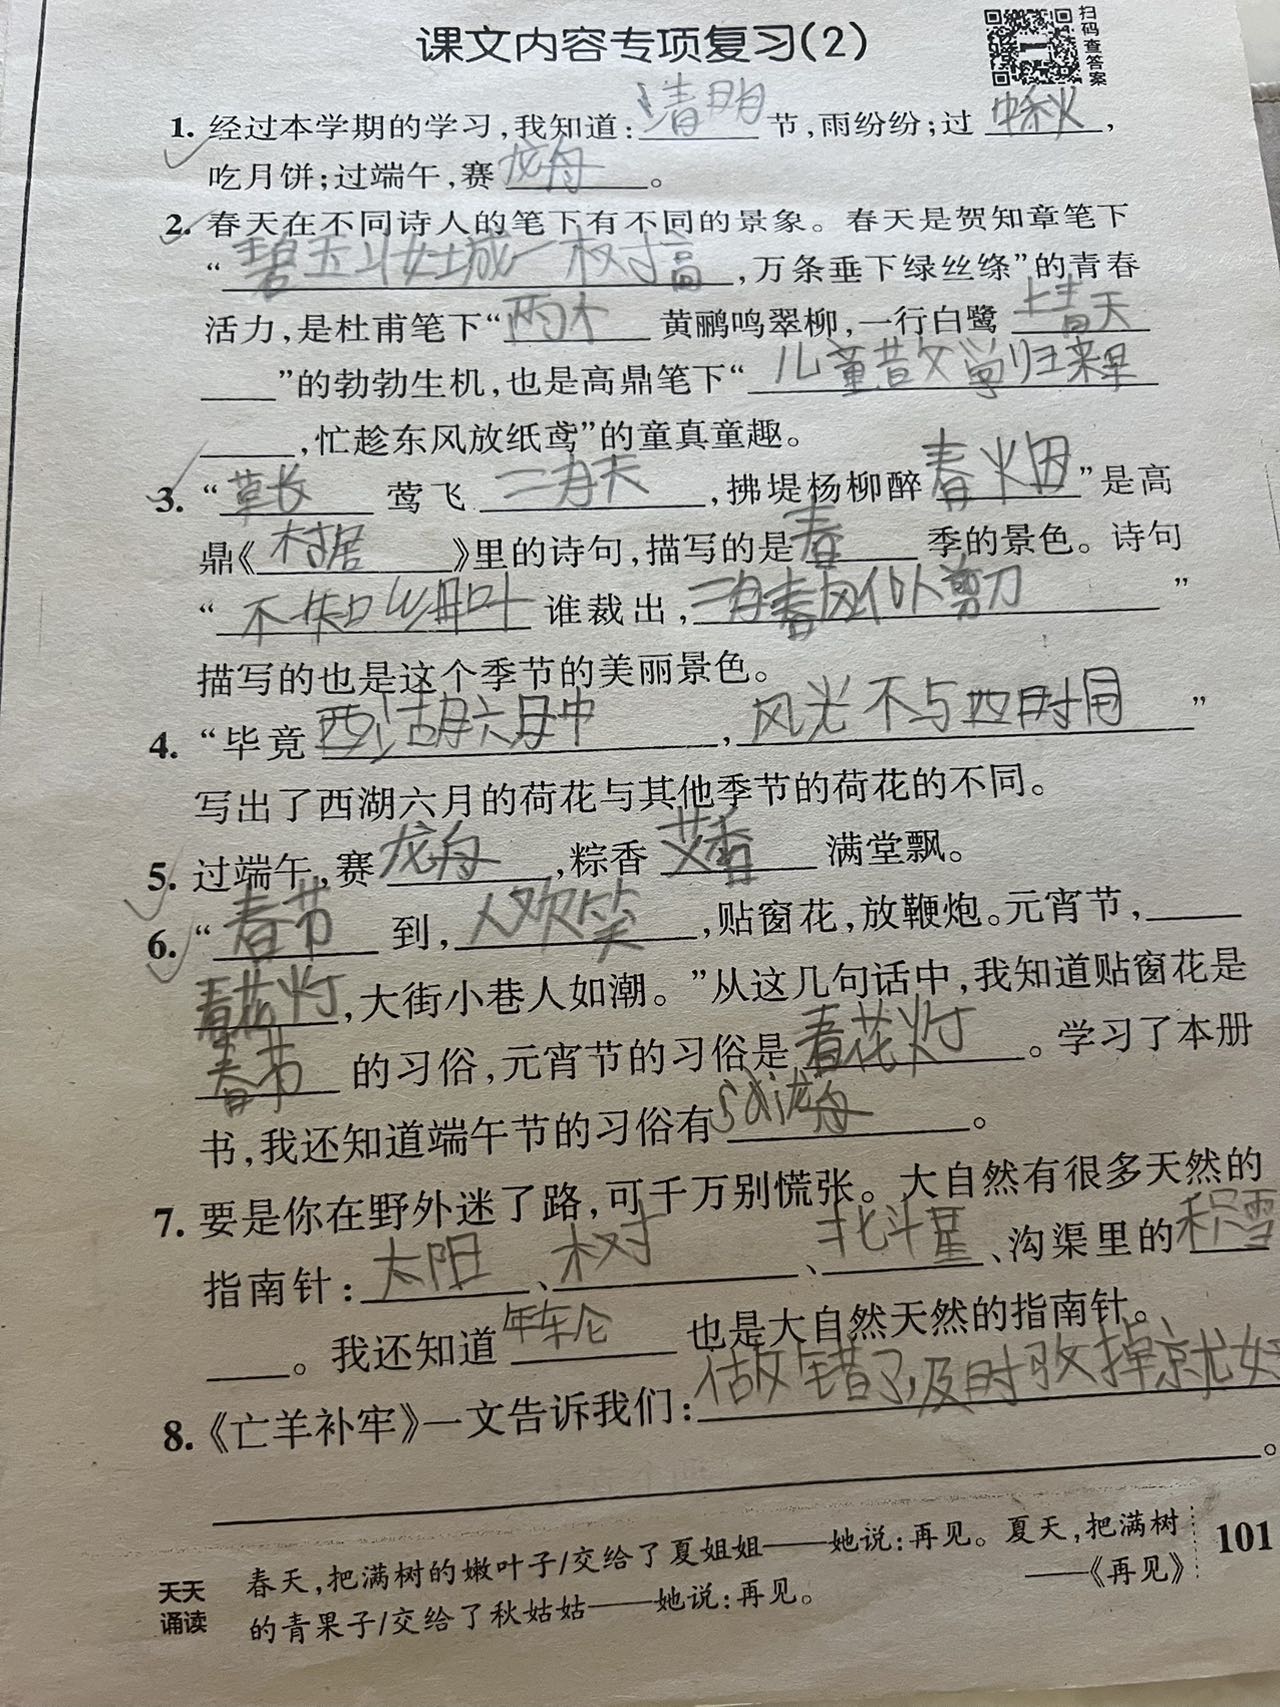 课文内容专项复习(2)
扫码查答案
1. 经过本学期的学习,我知道:清明节,雨纷纷;过中秋,
吃月饼;过端午,赛龙舟。
2. 春天在不同诗人的笔下有不同的景象。春天是贺知章笔下
“碧玉妆成一树高,万条垂下绿丝绦”的青春
活力,是杜甫笔下“两个黄鹂鸣翠柳,一行白鹭上青天
”的勃勃生机,也是高鼎笔下“儿童散学归来早
,忙趁东风放纸鸢”的童真童趣。
3. “草长莺飞二月天,拂堤杨柳醉春烟”是高
鼎《村居》里的诗句,描写的是春季的景色。诗句
“不知细叶谁裁出,二月春风似剪刀”
描写的也是这个季节的美丽景色。
4. “毕竟西湖六月中,风光不与四时同”
写出了西湖六月的荷花与其他季节的荷花的不同。
5. 过端午,赛龙舟,粽香艾香满堂飘。
6. “春节到,人欢笑,贴窗花,放鞭炮。元宵节,
看花灯,大街小巷人如潮。”从这几句话中,我知道贴窗花是
春节的习俗,元宵节的习俗是看花灯。学习了本册
书,我还知道端午节的习俗有龙舟。
7. 要是你在野外迷了路,可千万别慌张。大自然有很多天然的
指南针:太阳、树、北斗星、沟渠里的积雪
。我还知道年轮也是大自然天然的指南针。
8.《亡羊补牢》一文告诉我们:做错了,及时改掉就好
。
天天诵读
春天,把满树的嫩叶子/交给了夏姐姐——她说:再见。夏天,把满树
的青果子/交给了秋姑姑——她说:再见。
——《再见》
101